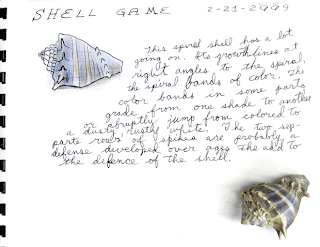 SHELL GAME 2-21-2009
This spiral shell has a lot
going on. Its growth lines at
right angles to the spiral,
the spiral bands of color. The
color bands in some parts
grade from one shade to another
or abruptly jump from colored to
a dusty, rusty white. The two sep-
parte rows of spines are probably a
defense developed over ages to add to
the defence of the shell.